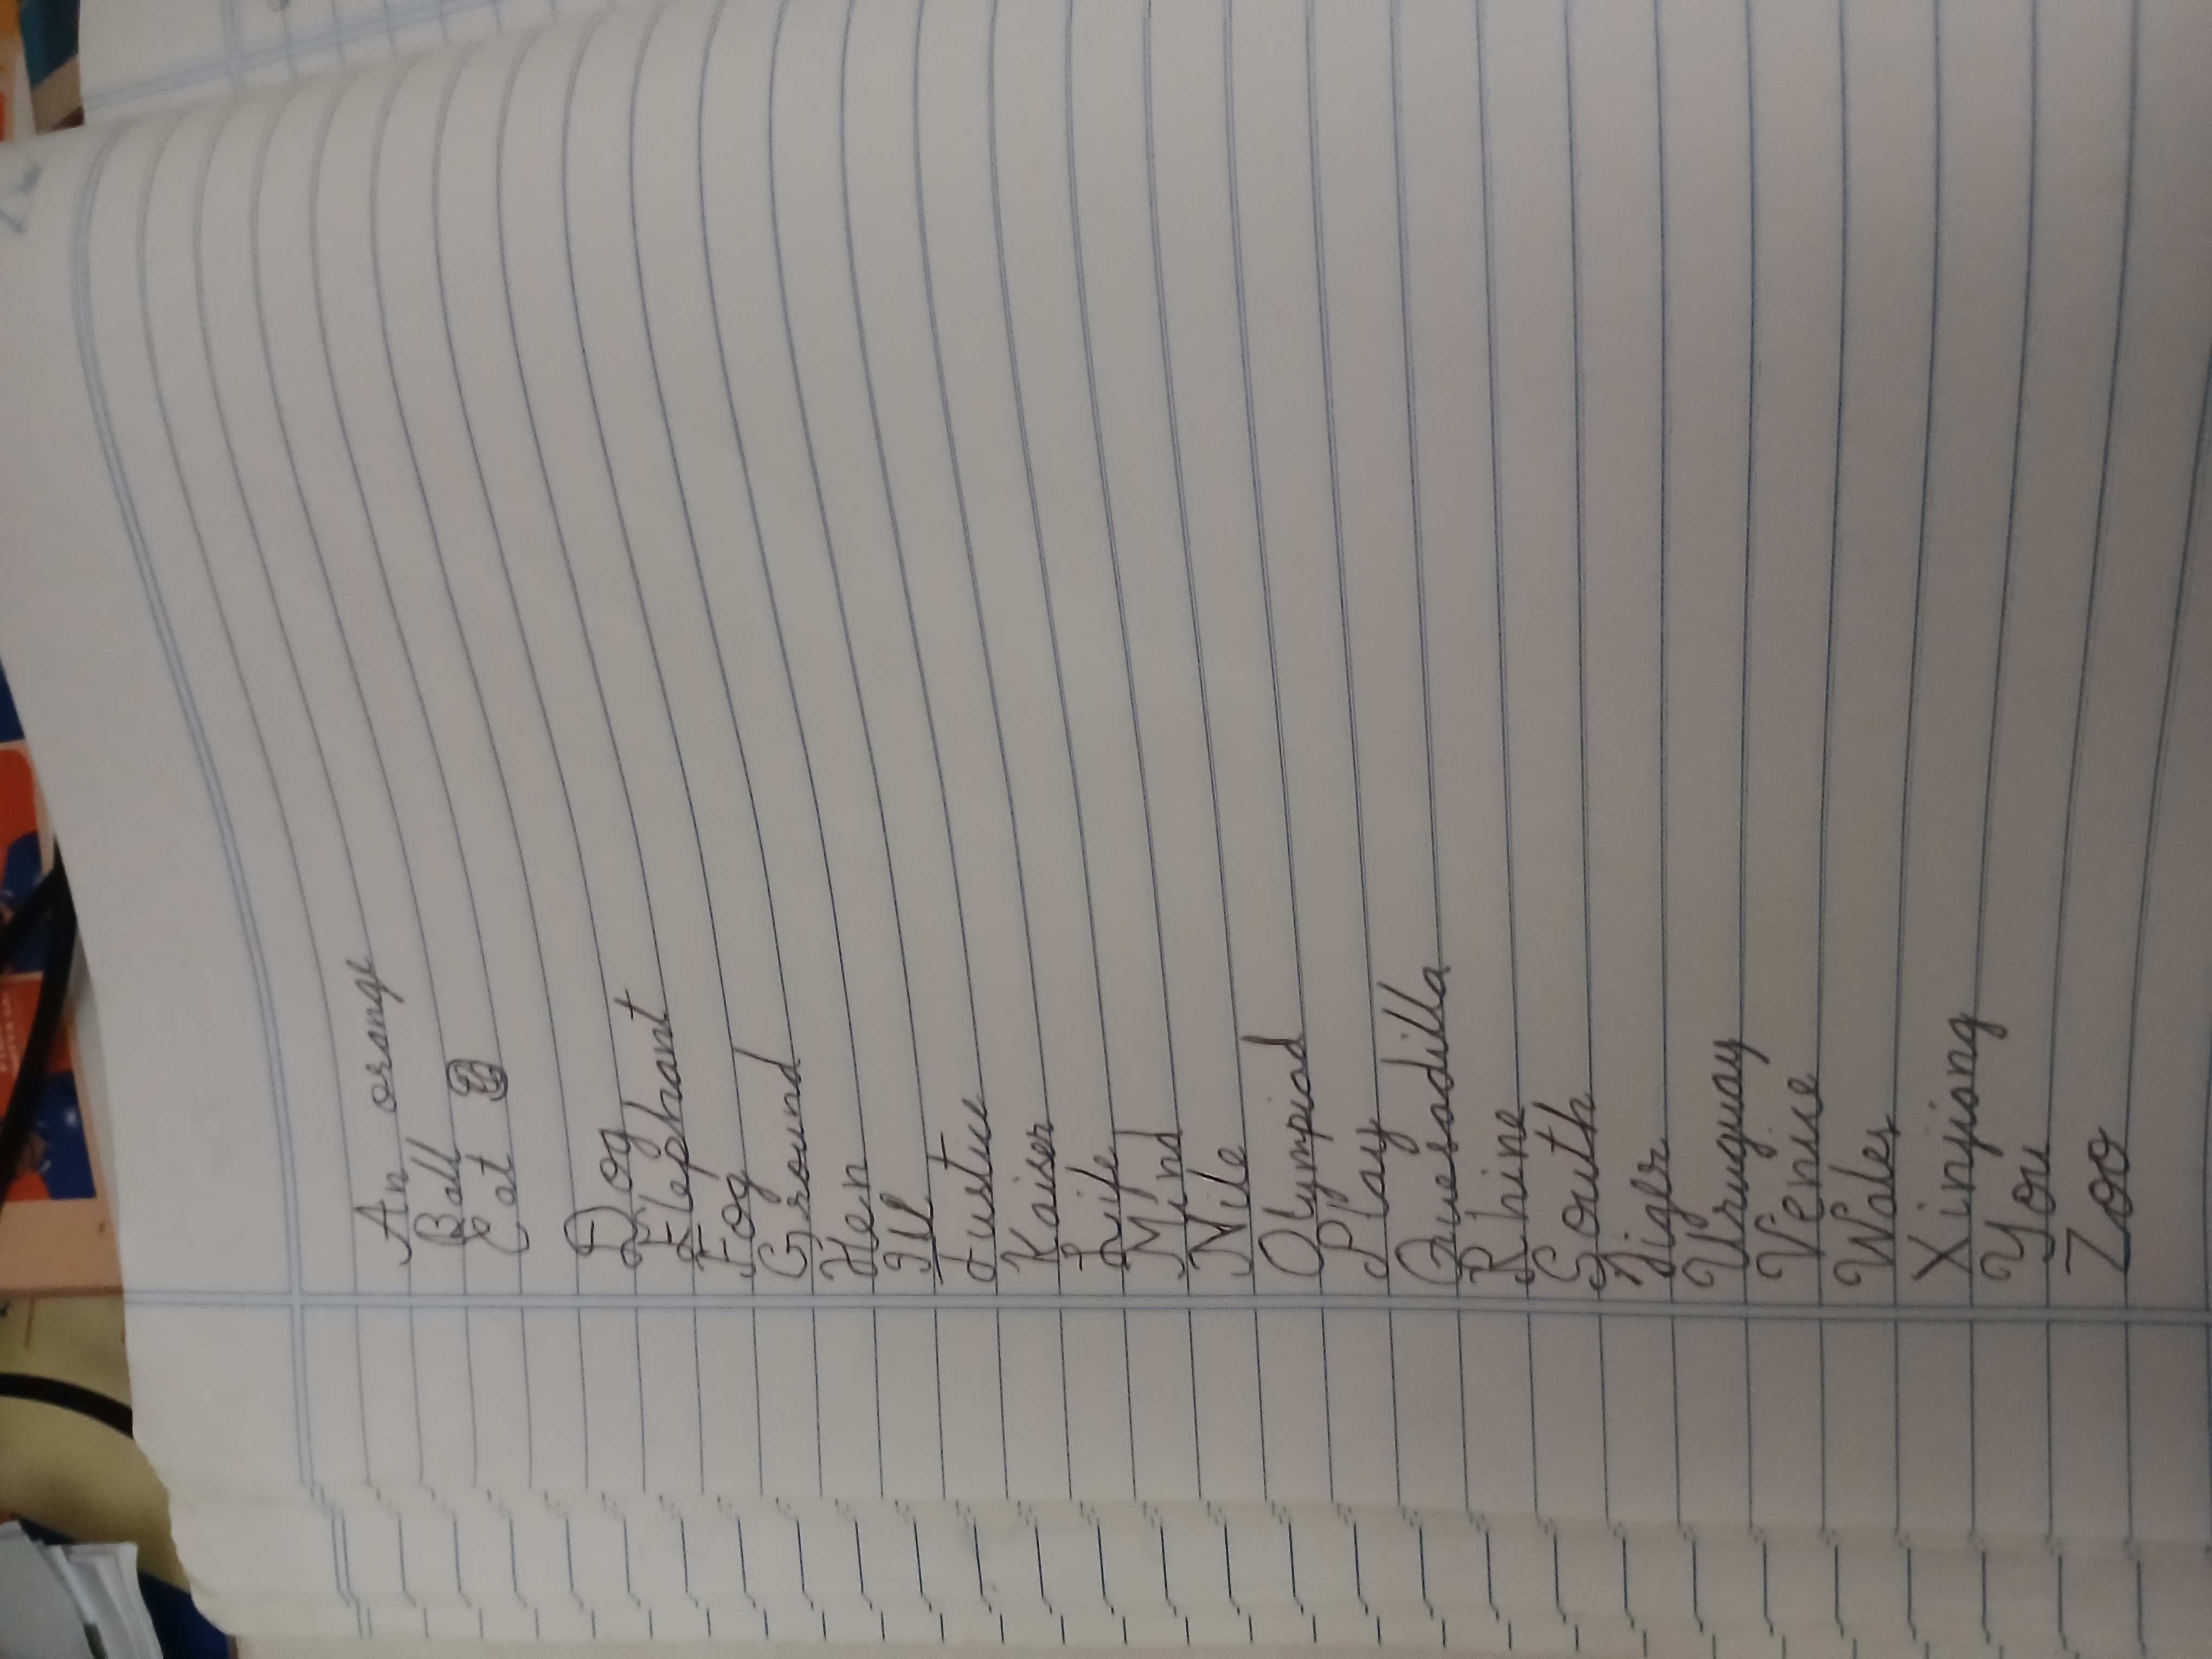 An orange
Ball
Cat
Dog
Elephant
Fog
Ground
Hen
Ill
Justice
Kaiser
Life
Mind
Nile
Olympiad
Play
Quesadilla
Rhine
South
Tiger
Uruguay
Venue
Wales
Xinjiang
You
Zoo